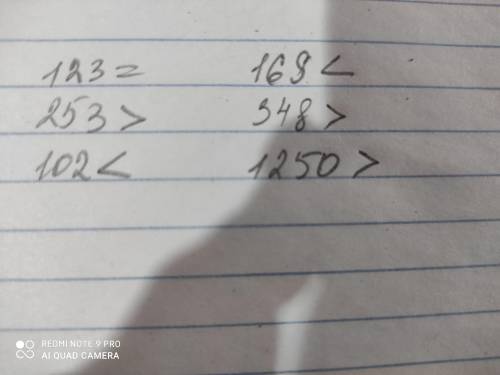 123 = 169 <
253 > 348 >
102 < 1250 >
REDMI NOTE 9 PRO
AI QUAD CAMERA